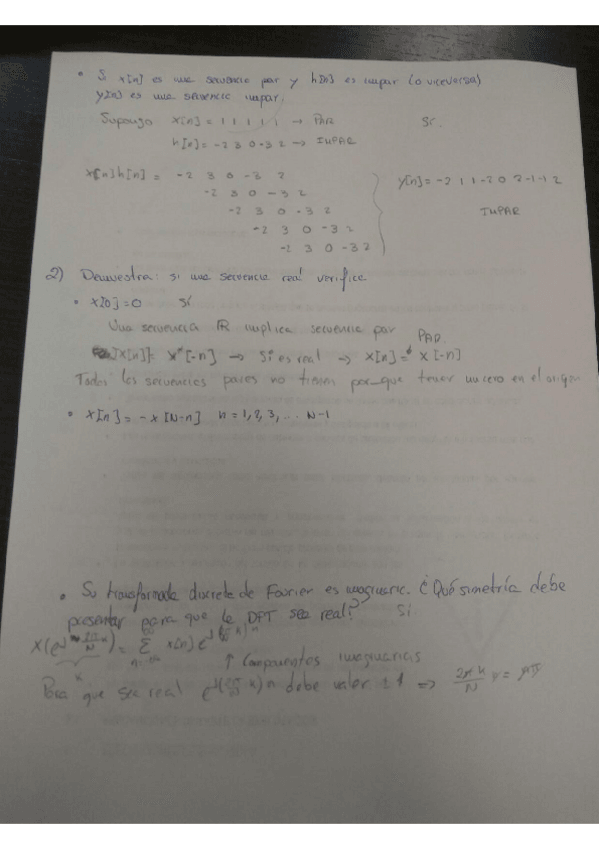 • Si x[n] es una secuencia par y h[n] es impar (o viceversa)
y[n] es una secuencia impar.
Supongo x[n] = 1 1 1 1 1 → PAR Sí.
h[n] = -2 3 0 -3 2 → IMPAR
x[n] h[n] = -2 3 0 -3 2
-2 3 0 -3 2 y[n] = -2 1 1 -2 0 2 -1 -1 2
-2 3 0 -3 2 IMPAR
-2 3 0 -3 2
-2 3 0 -3 2
2) Demuestra: si una secuencia real verifica
• x[0] = 0 Sí
Una secuencia ℝ implica secuencia par
x[n] = x*[-n] → Si es real → x[n] = x[-n] PAR
Todas las secuencias pares no tienen por que tener un cero en el origen
• x[n] = -x[N-n] n = 1, 2, 3, ... N-1
• Su transformada discreta de Fourier es imaginaria. ¿Qué simetría debe
presentar para que la DFT sea real? Sí
↑ Componentes imaginarias
Para que sea real debe valer ±1 ⇒